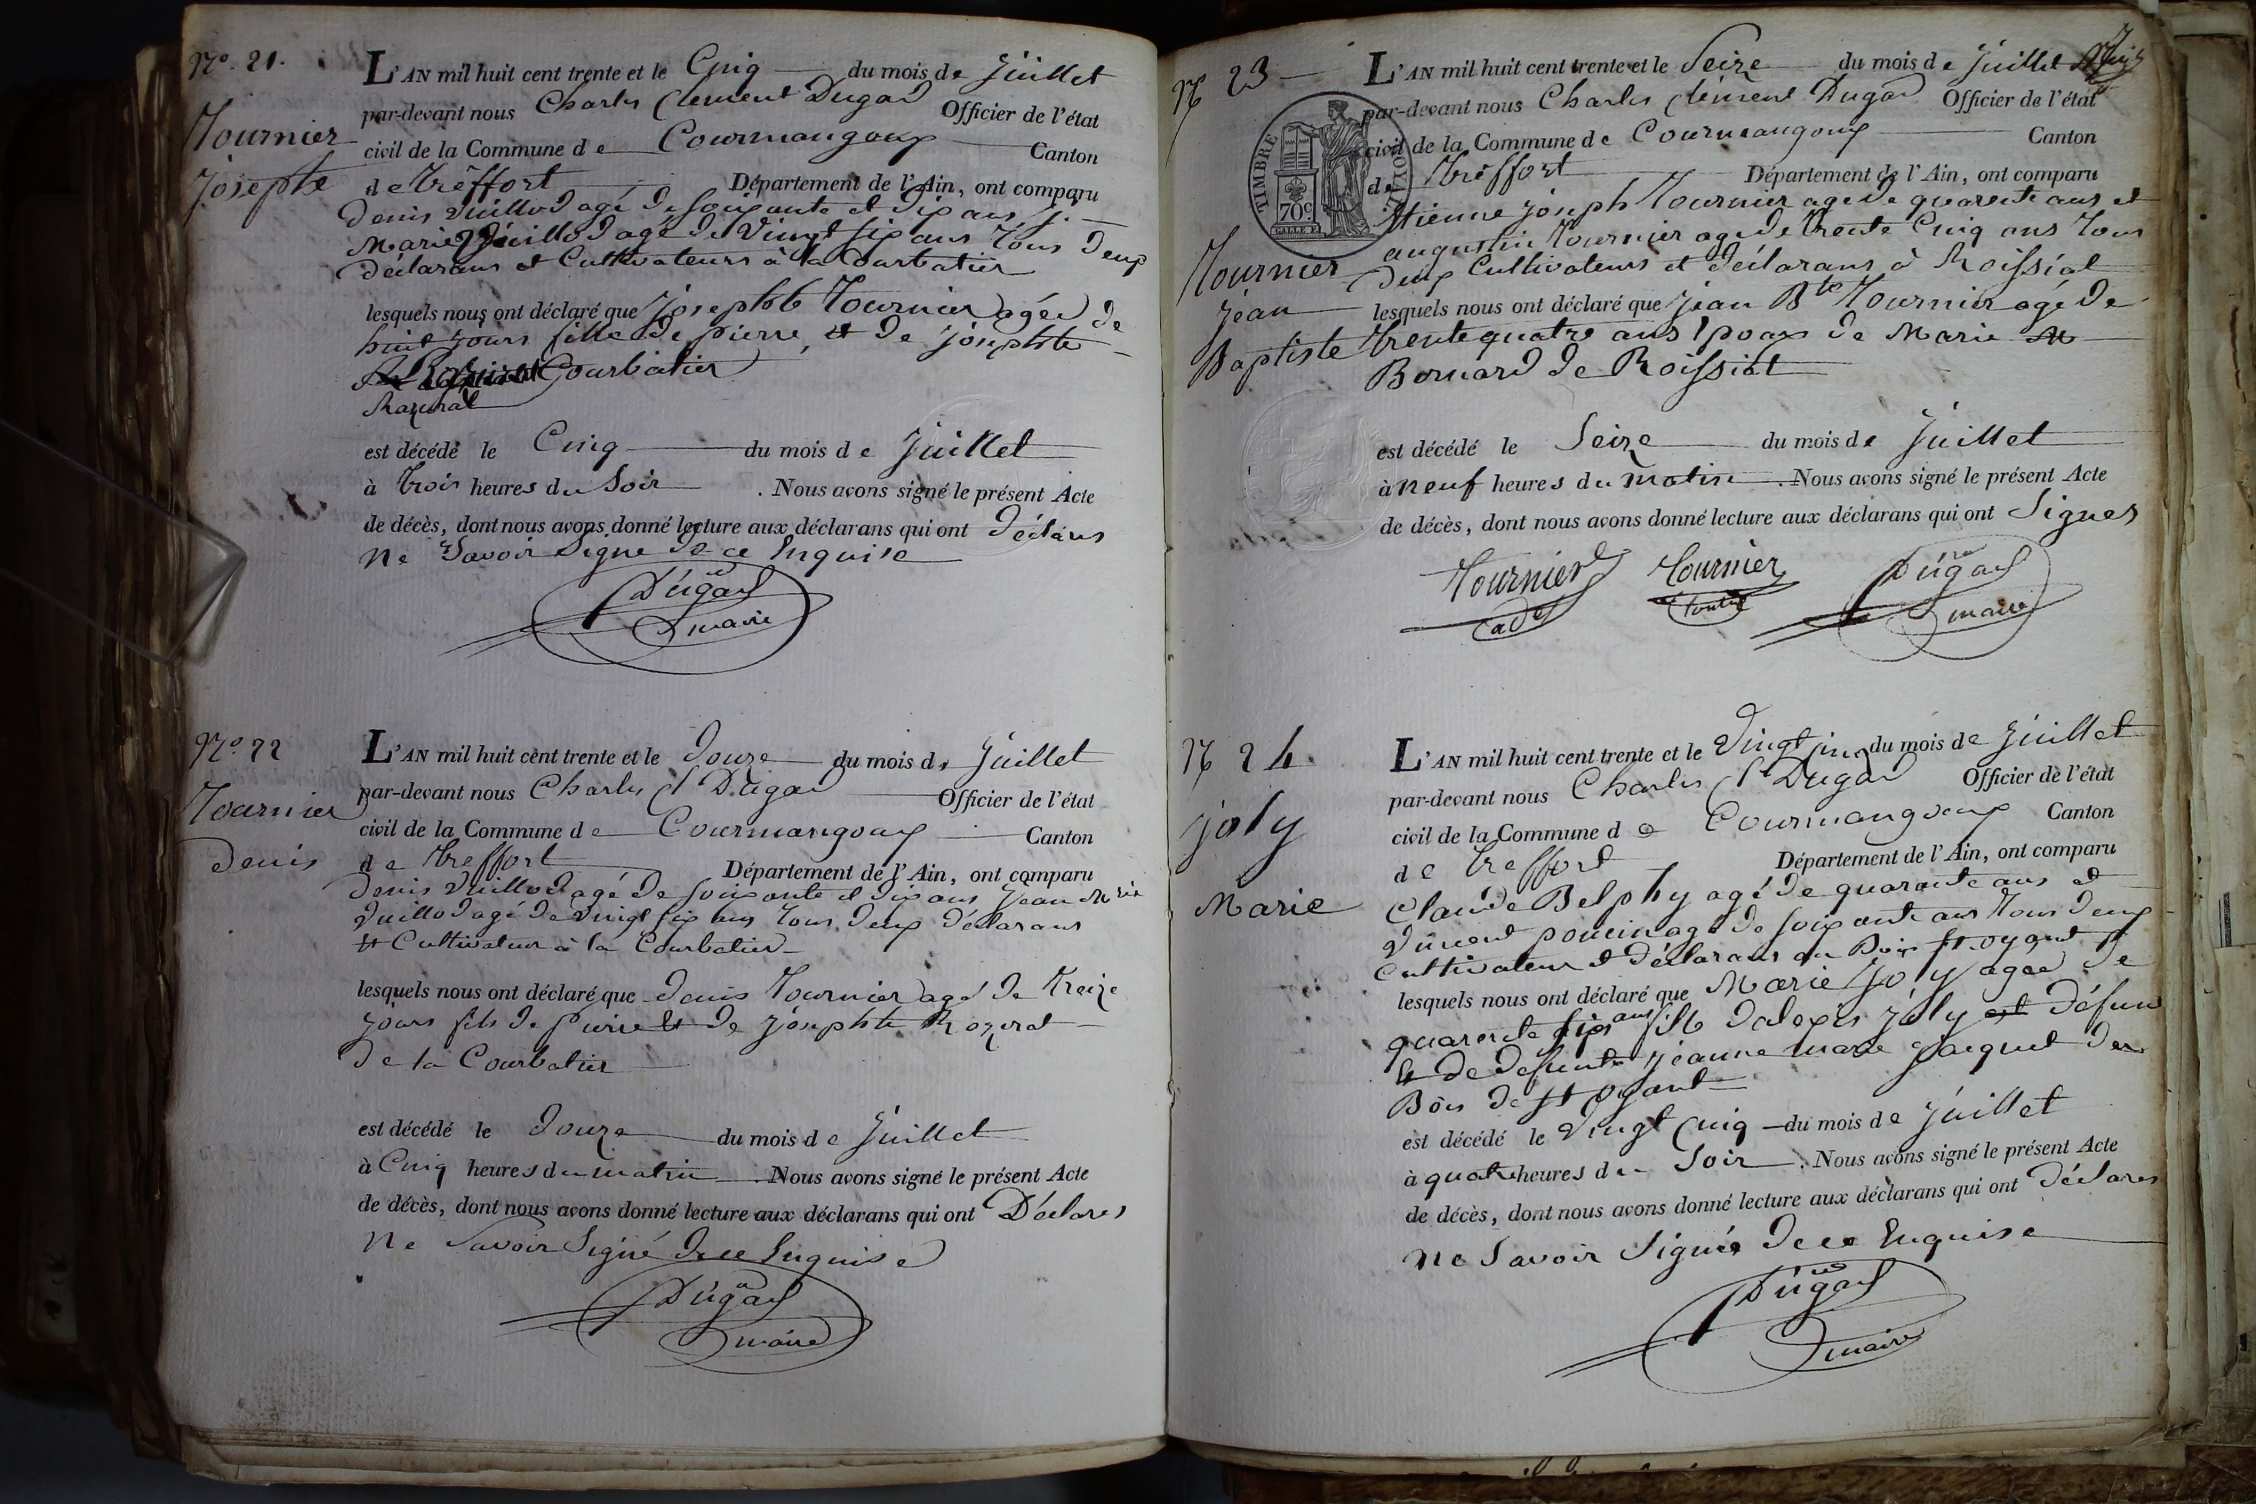 No. 21.
Tournier
Josephte
L'AN mil huit cent trente et le Cinq du mois de Juillet
par-devant nous Charles Clement Dugad Officier de l'état
civil de la Commune de Courmangoux Canton
de Treffort Département de l'Ain, ont comparu
Denis Vuillod agé de soixante et dix ans
Marie Vuillod agé de vingt six ans tous deux
déclarans et Cultivateurs à la Courbatier
lesquels nous ont déclaré que Josephte Tournier agée de
huit jours fille de pierre et de Josephte
Courbatier
Razurat
est décédé le Cinq du mois de Juillet
à trois heures du Soir. Nous avons signé le présent Acte
de décès, dont nous avons donné lecture aux déclarans qui ont déclarés
Ne Savoir Signe de ce Enquise
Dugad
maire
No. 22
Tournier
Denis
L'AN mil huit cent trente et le douze du mois de Juillet
par-devant nous Charles Ct Dugad Officier de l'état
civil de la Commune de Courmangoux Canton
de Treffort Département de l'Ain, ont comparu
Denis Vuillod agé de soixante et dix ans Jean Marie
Vuillod agé de vingt six ans tous deux déclarans
et Cultivateur à la Courbatier
lesquels nous ont déclaré que denis Tournier agé de treize
jours fils de pierre et de Josephte Rozerat
de la Courbatier
est décédé le douze du mois de Juillet
à Cinq heures du matin. Nous avons signé le présent Acte
de décès, dont nous avons donné lecture aux déclarans qui ont Déclarés
Ne Savoir Signé de ce Enquise
Dugad
maire
No 23
Tournier
Jean
Baptiste
TIMBRE ROYAL
70c
L'AN mil huit cent trente et le Seize du mois de Juillet
par-devant nous Charles Clément Dugad Officier de l'état
civil de la Commune de Courmangoux Canton
de Treffort Département de l'Ain, ont comparu
Etienne Joseph Tournier agé de quarente ans et
augustin Tournier agé de trente Cinq ans tous
deux Cultivateurs et déclarans à Roissiat
lesquels nous ont déclaré que Jean Bte Tournier agé de
trente quatre ans Epoux de Marie
Bornard de Roissiat
est décédé le Seize du mois de Juillet
à neuf heures du matin. Nous avons signé le présent Acte
de décès, dont nous avons donné lecture aux déclarans qui ont Signes
Tournier Tournier Dugad
maire
No 24
Joly
Marie
L'AN mil huit cent trente et le Vingt cinq du mois de Juillet
par-devant nous Charles Ct Dugad Officier de l'état
civil de la Commune de Courmangoux Canton
de Treffort Département de l'Ain, ont comparu
Claude Belphy agé de quarante ans et
Vincent poncin agé de soixante ans tous deux
Cultivateur et déclarans au Bois St oyant
lesquels nous ont déclaré que Marie Joly agée de
quarente six ans fille dalexis Joly et défun
et de defunte jeanne marie Jacquet de
Bois de St oyant
est décédé le vingt cinq du mois de Juillet
à quatre heures du Soir. Nous avons signé le présent Acte
de décès, dont nous avons donné lecture aux déclarans qui ont déclarés
Ne Savoir Signés de ce Enquise
Dugad
maire